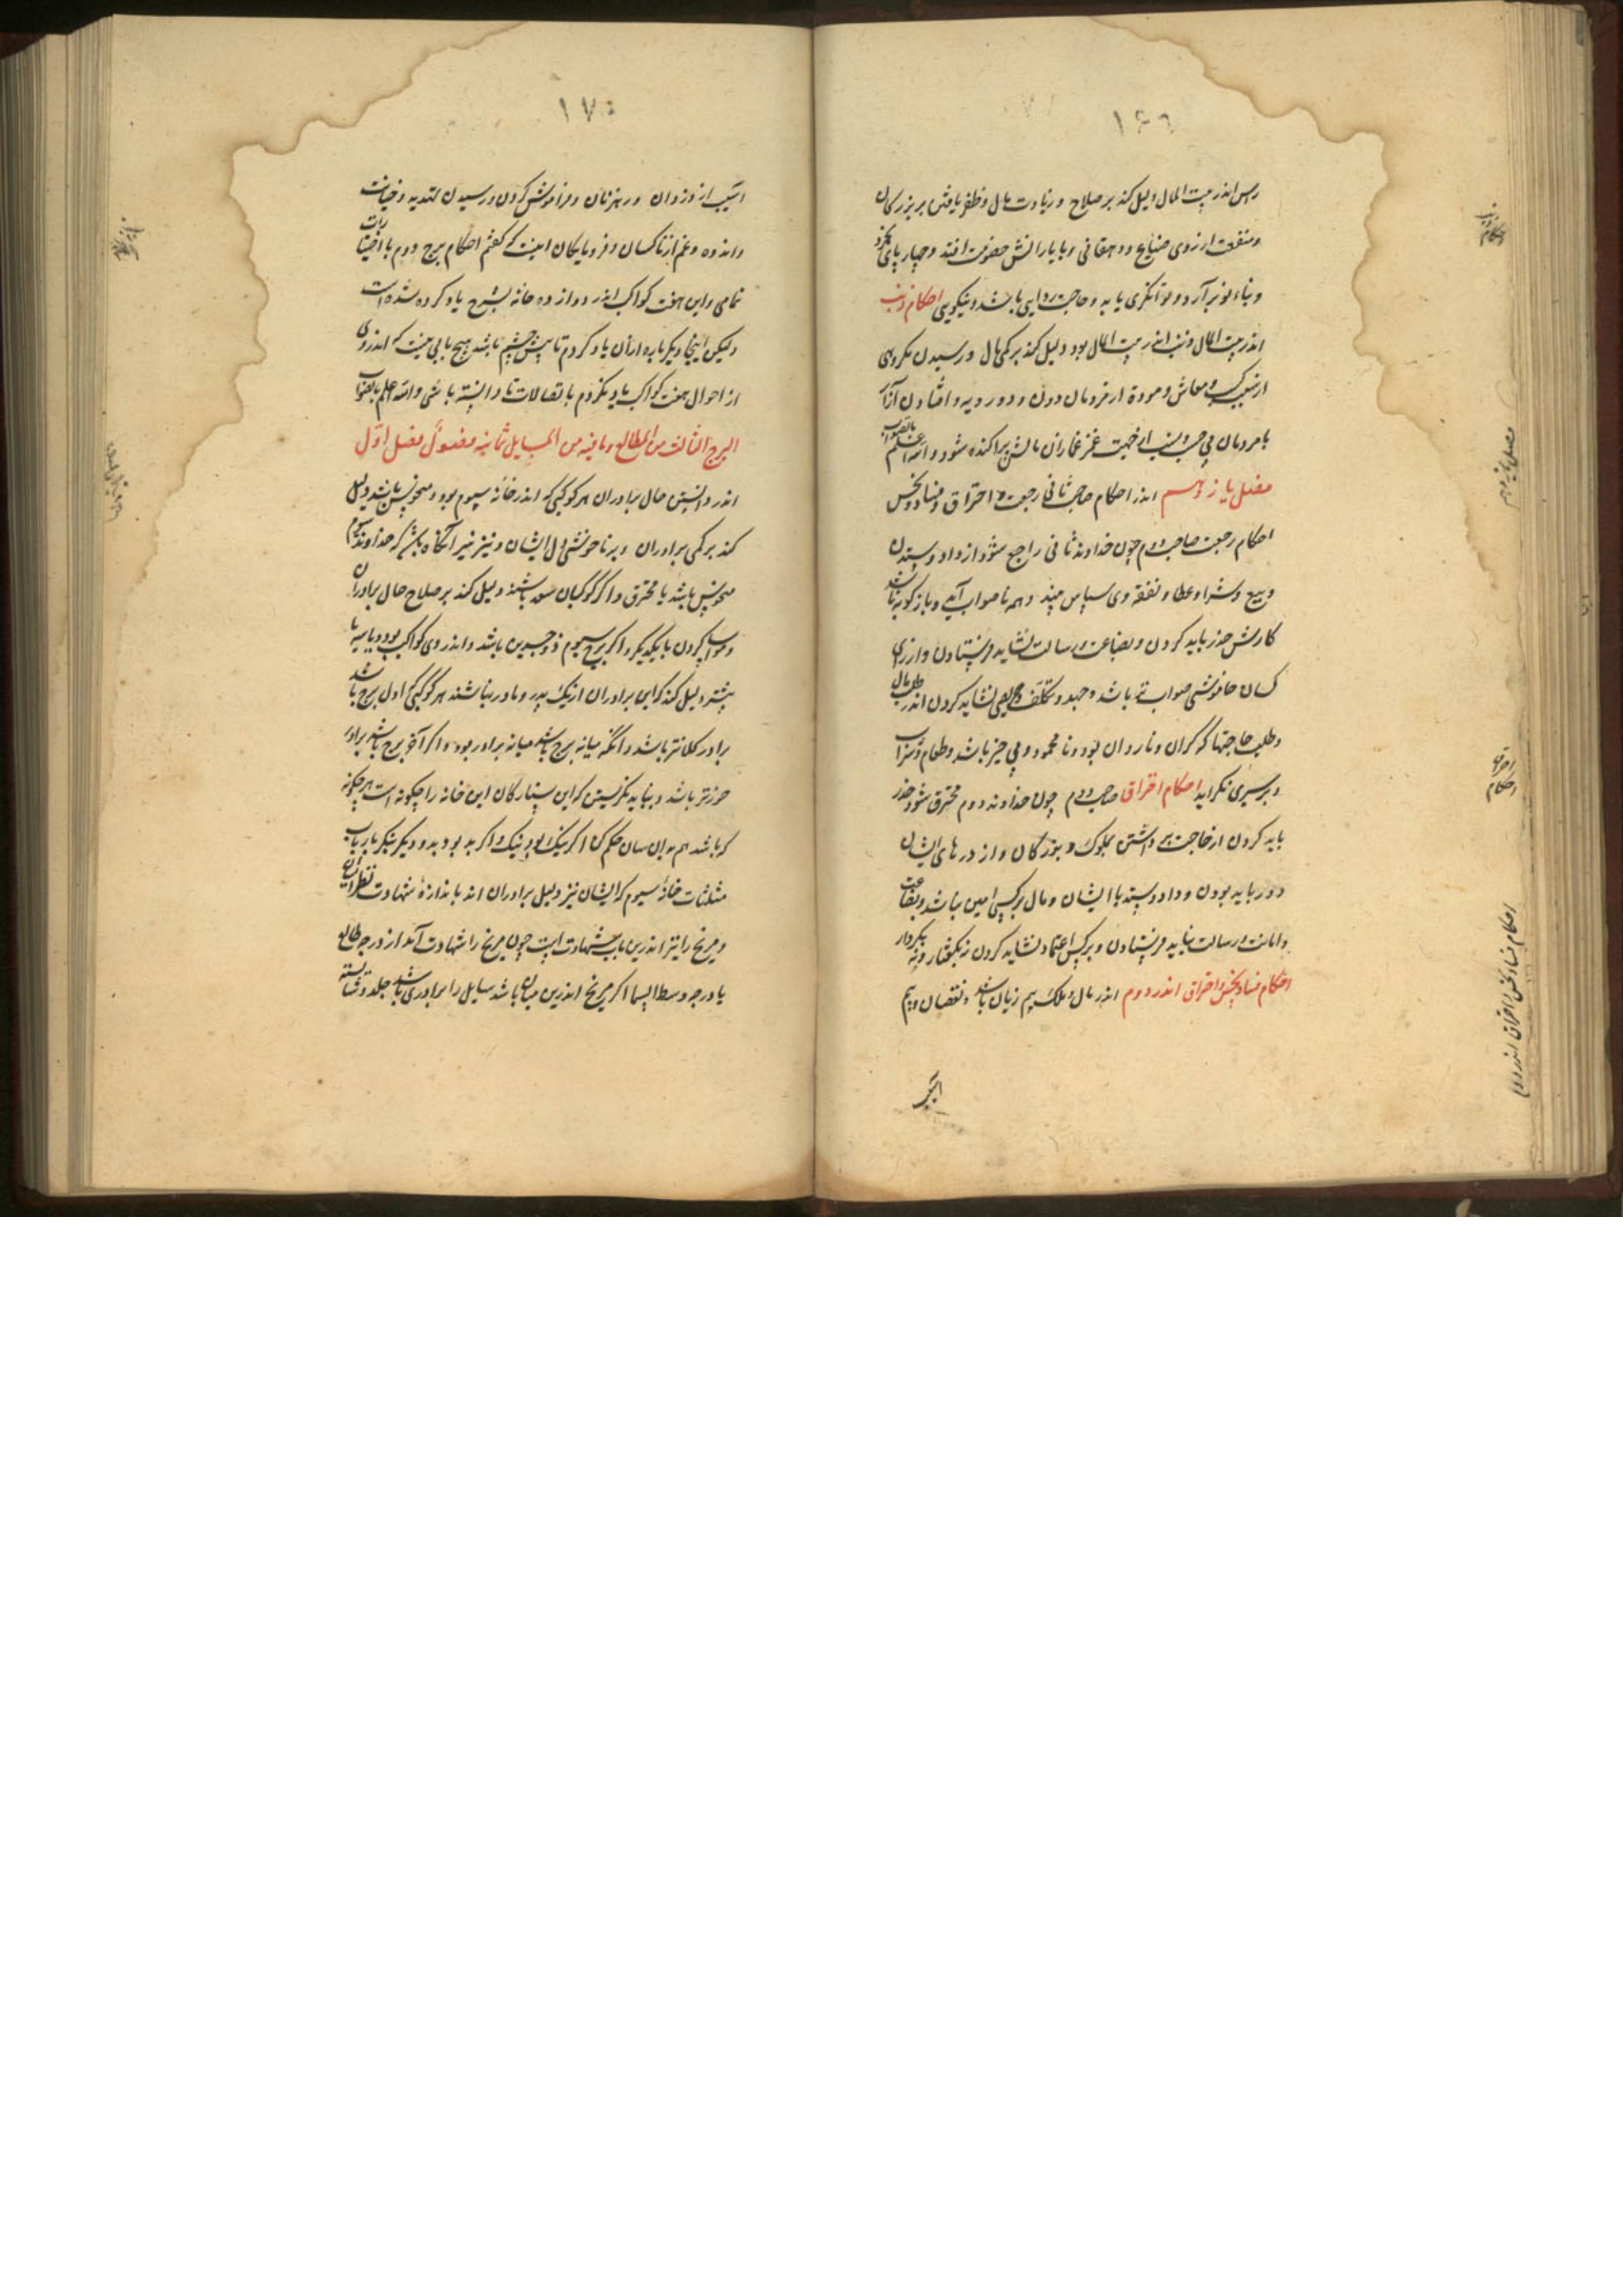 ۱۶۹
راس اندر بیت المال دلیل کند بر صلاح و زیادت مال و ظفر یافتن بر بزرکان
ومنفعت از روی ضیاع ودهقانی وبا یارانش خصومت افتد وچهار پای
وبناء نو برآرد وتوانکری یابد وحاجت روایی باشد ونیکویی احکام ذنب
اندر بیت المال ذنب اندر بیت المال بود دلیل کند بر کمی مال ورسیدن مکروهی
از سبب کسب ومعاش ومودة از مردمان دون ودور دیه وافتادن
بامردمان بی حسب ونسب از جهت غمز غمازان مالش پراکنده شود والله اعلم بالصواب
فصل یازدهم اندر احکام صاحب ثانی رجعت واحتراق وفساد ونحس
احکام رجعت صاحب دوم چون خداوند ثانی راجع شود از داد وستدن
وبیع وشرا وعطا ونفقه وی سپاس نبیند وهمه ناصواب آید وباز کونه باشد
کارش حذر باید کردن وبضاعت ورسالت نشاید فرستادن وارزوی
کسان خاموشی صوابتر باشد وجهد وتکلف وحریصی نشاید کردن اندر طلب مال
وطلب حاجتها که کران وناروان بود ونامحمود وبی خیر باشد وطعام وشراب
وبر سیری نکراید احکام احتراق صاحب دوم چون خداوند دوم محترق شود حذر
باید کردن از حاجت برداشتن بملوک وبزرکان واز درهای ایشان
دور باید بودن وداد وستد با ایشان ومال بر کسی امین نباشد وبضاعت
وامانت ورسالت نباید فرستادن وبر کس اعتماد نشاید کردن نه بکفتار ونه بکردار
احکام فساد ونحس واحتراق اندر دوم اندر مال وملک بیم زیان باشد ونقصان وبیم
احکام ذنب
فصل یازدهم
احتراق
احکام
احکام فساد ونحس واحتراق اندر دوم
۱۷۰
آسیب از دزدان ورهزنان وفراموش کردن ورسیدن تهدید وخیانت
واندوه وغم از ناکسان وفرومایکان اینست که کفتم احکام برج دوم با اختیارات
تمامی واین هفت کواکب اندر دوازده خانه بشرح یاد کرده شده است
ولیکن اینجا دیکر باره از آن یاد کردم تا پیش چشم باشد هیچ بابی نیست که اندر وی
از احوال هفت کواکب یاد نکردم با اتصالات تا دانسته باشی والله اعلم بالصواب
البرج الثالث من الطالع ومافیه من المسایل ثمانیه فصول فصل اول
اندر دانستن حال برادران هر کوکبی که اندر خانه سیوم بود ومنحوس باشد دلیل
کند بر کمی برادران وبر ناخوشی دل ایشان ونیز نیز آنکاه باشد که خداوند سیوم
منحوس باشد یا محترق واکر کوکبان سعد باشند دلیل کند بر صلاح حال برادران
ومواسا کردن با یکدیکر واکر برج سیوم ذوجسدین باشد واندر وی کواکب بود دو یا سه یا
بیشتر دلیل کند که این برادران از یک پدر ومادر نباشند هر کوکبی که اول برج باشد
برادر کلانتر باشد وآنکه میانه برج باشد میانه برادر بود واکر آخر برج باشد برادر
خوردتر باشد وبباید نکریستن که این ستارکان این خانه را چکونه است هر چکونه
که باشد هم بدان سان حکم کن اکر نیک بود نیک واکر بد بود بد ودیکر بنکر بارباب
مثلثات خانه سیوم که ایشان نیز دلیل برادران اند باندازه شهادت ونظر ایشان
ومریخ را نیز اندرین باب شهادت است چون مریخ را شهادت آمد از درجه طالع
یا درجه وسط السما اکر مریخ اندرین میان باشد سایل را برادری باشد جلد وشایسته